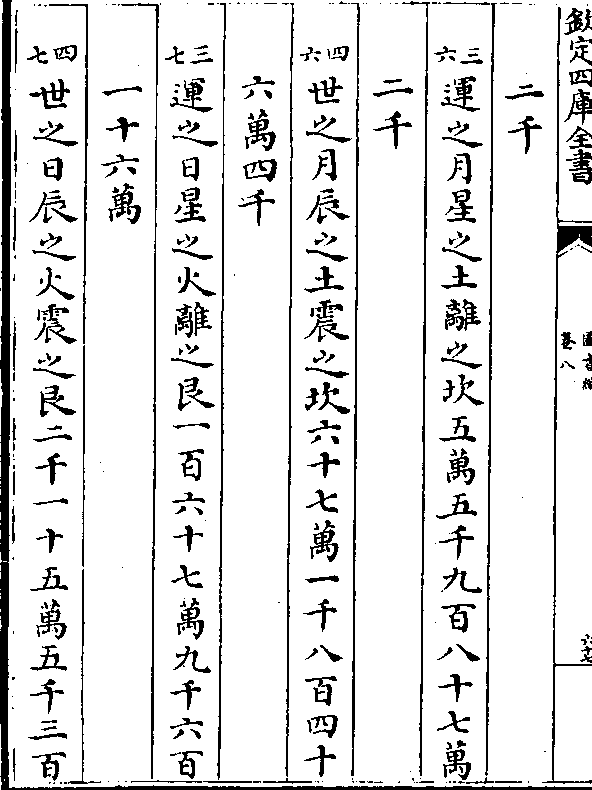 欽定四庫全書
圖書編
卷八
二千
三六運之月星之土離之坎五萬五千九百八十七萬
二千
四六世之月辰之土震之坎六十七萬一千八百四十
六萬四千
三七運之日星之火離之艮一百六十七萬九千六百
一十六萬
四七世之日辰之火震之艮二千一十五萬五千三百